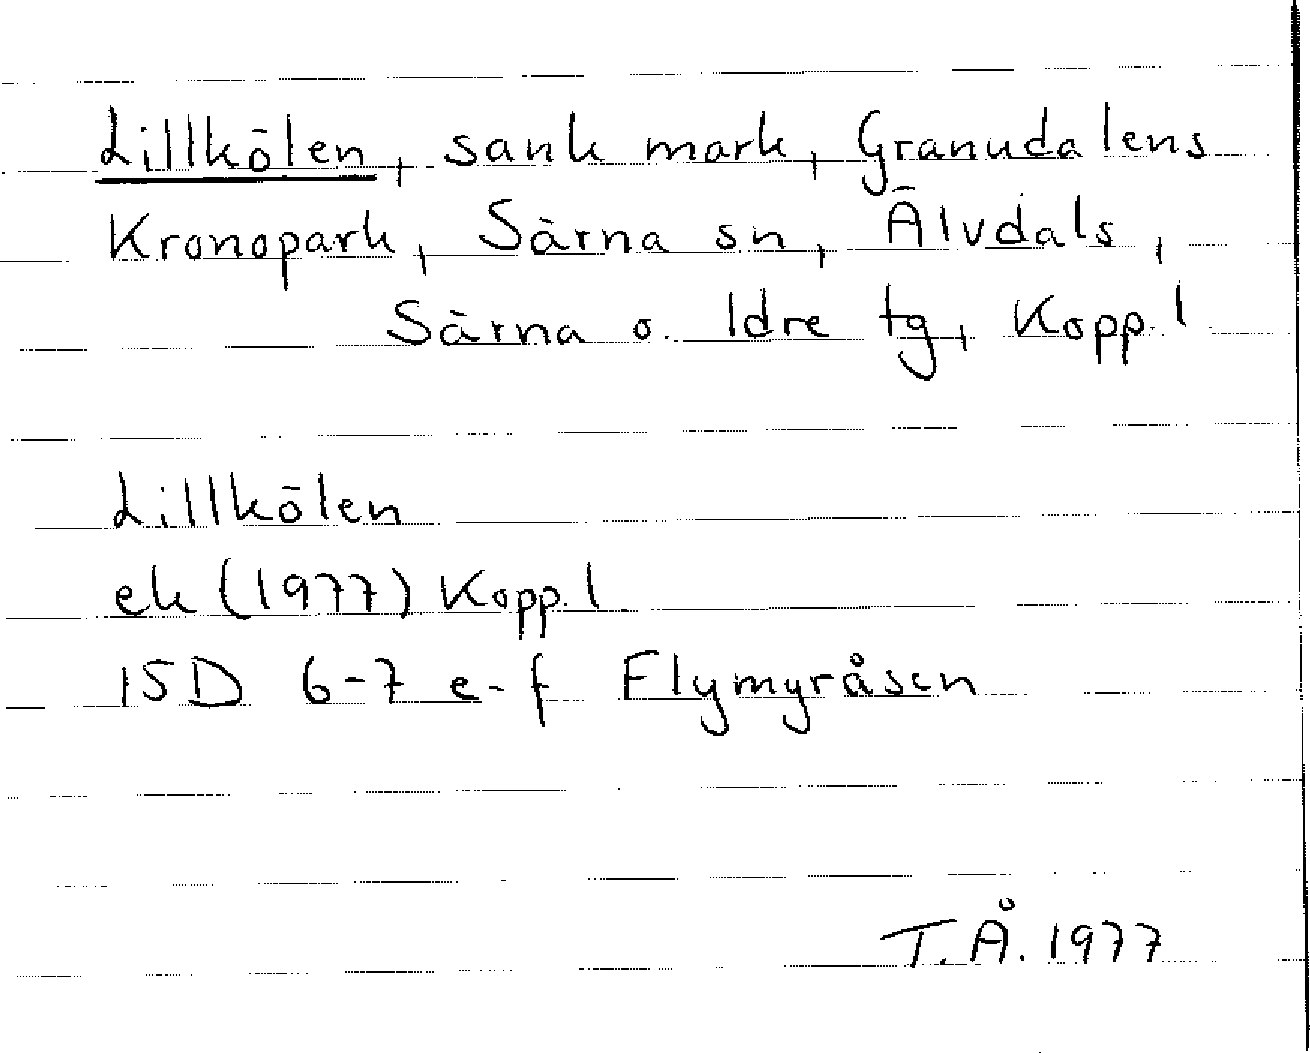 Lillkölen, sank mark, Granudalens
Kronopark, Särna sn, Älvdals,
Särna o. Idre tg, Kopp. l
Lillkölen
ek (1977) Kopp. l
15D 6-7 e-f Flymyråsen
T.Å. 1977